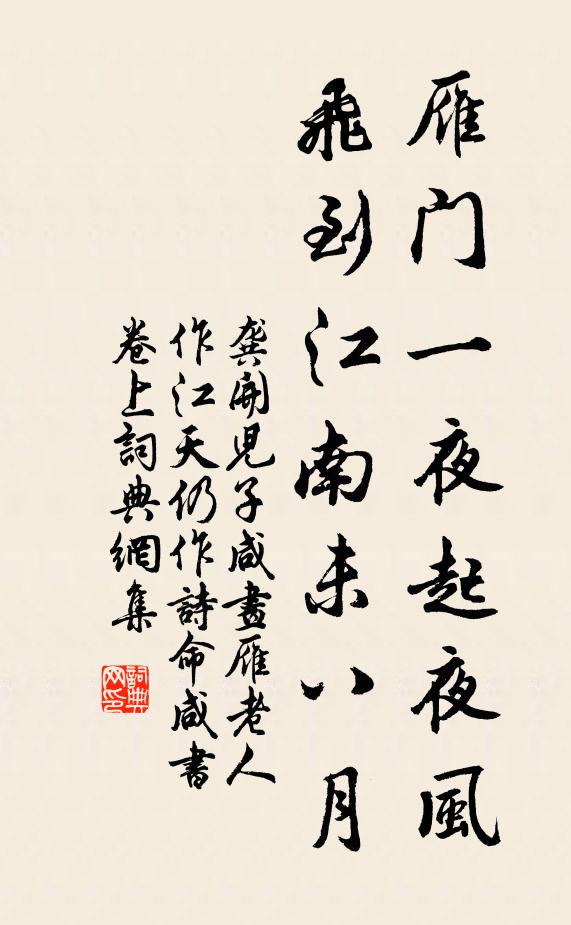 雁門一夜起夜風
飛到江南未八月
龔開児子咸畫雁老人
作江天仍作詩命咸書
卷上詞典網集
詞典
网印